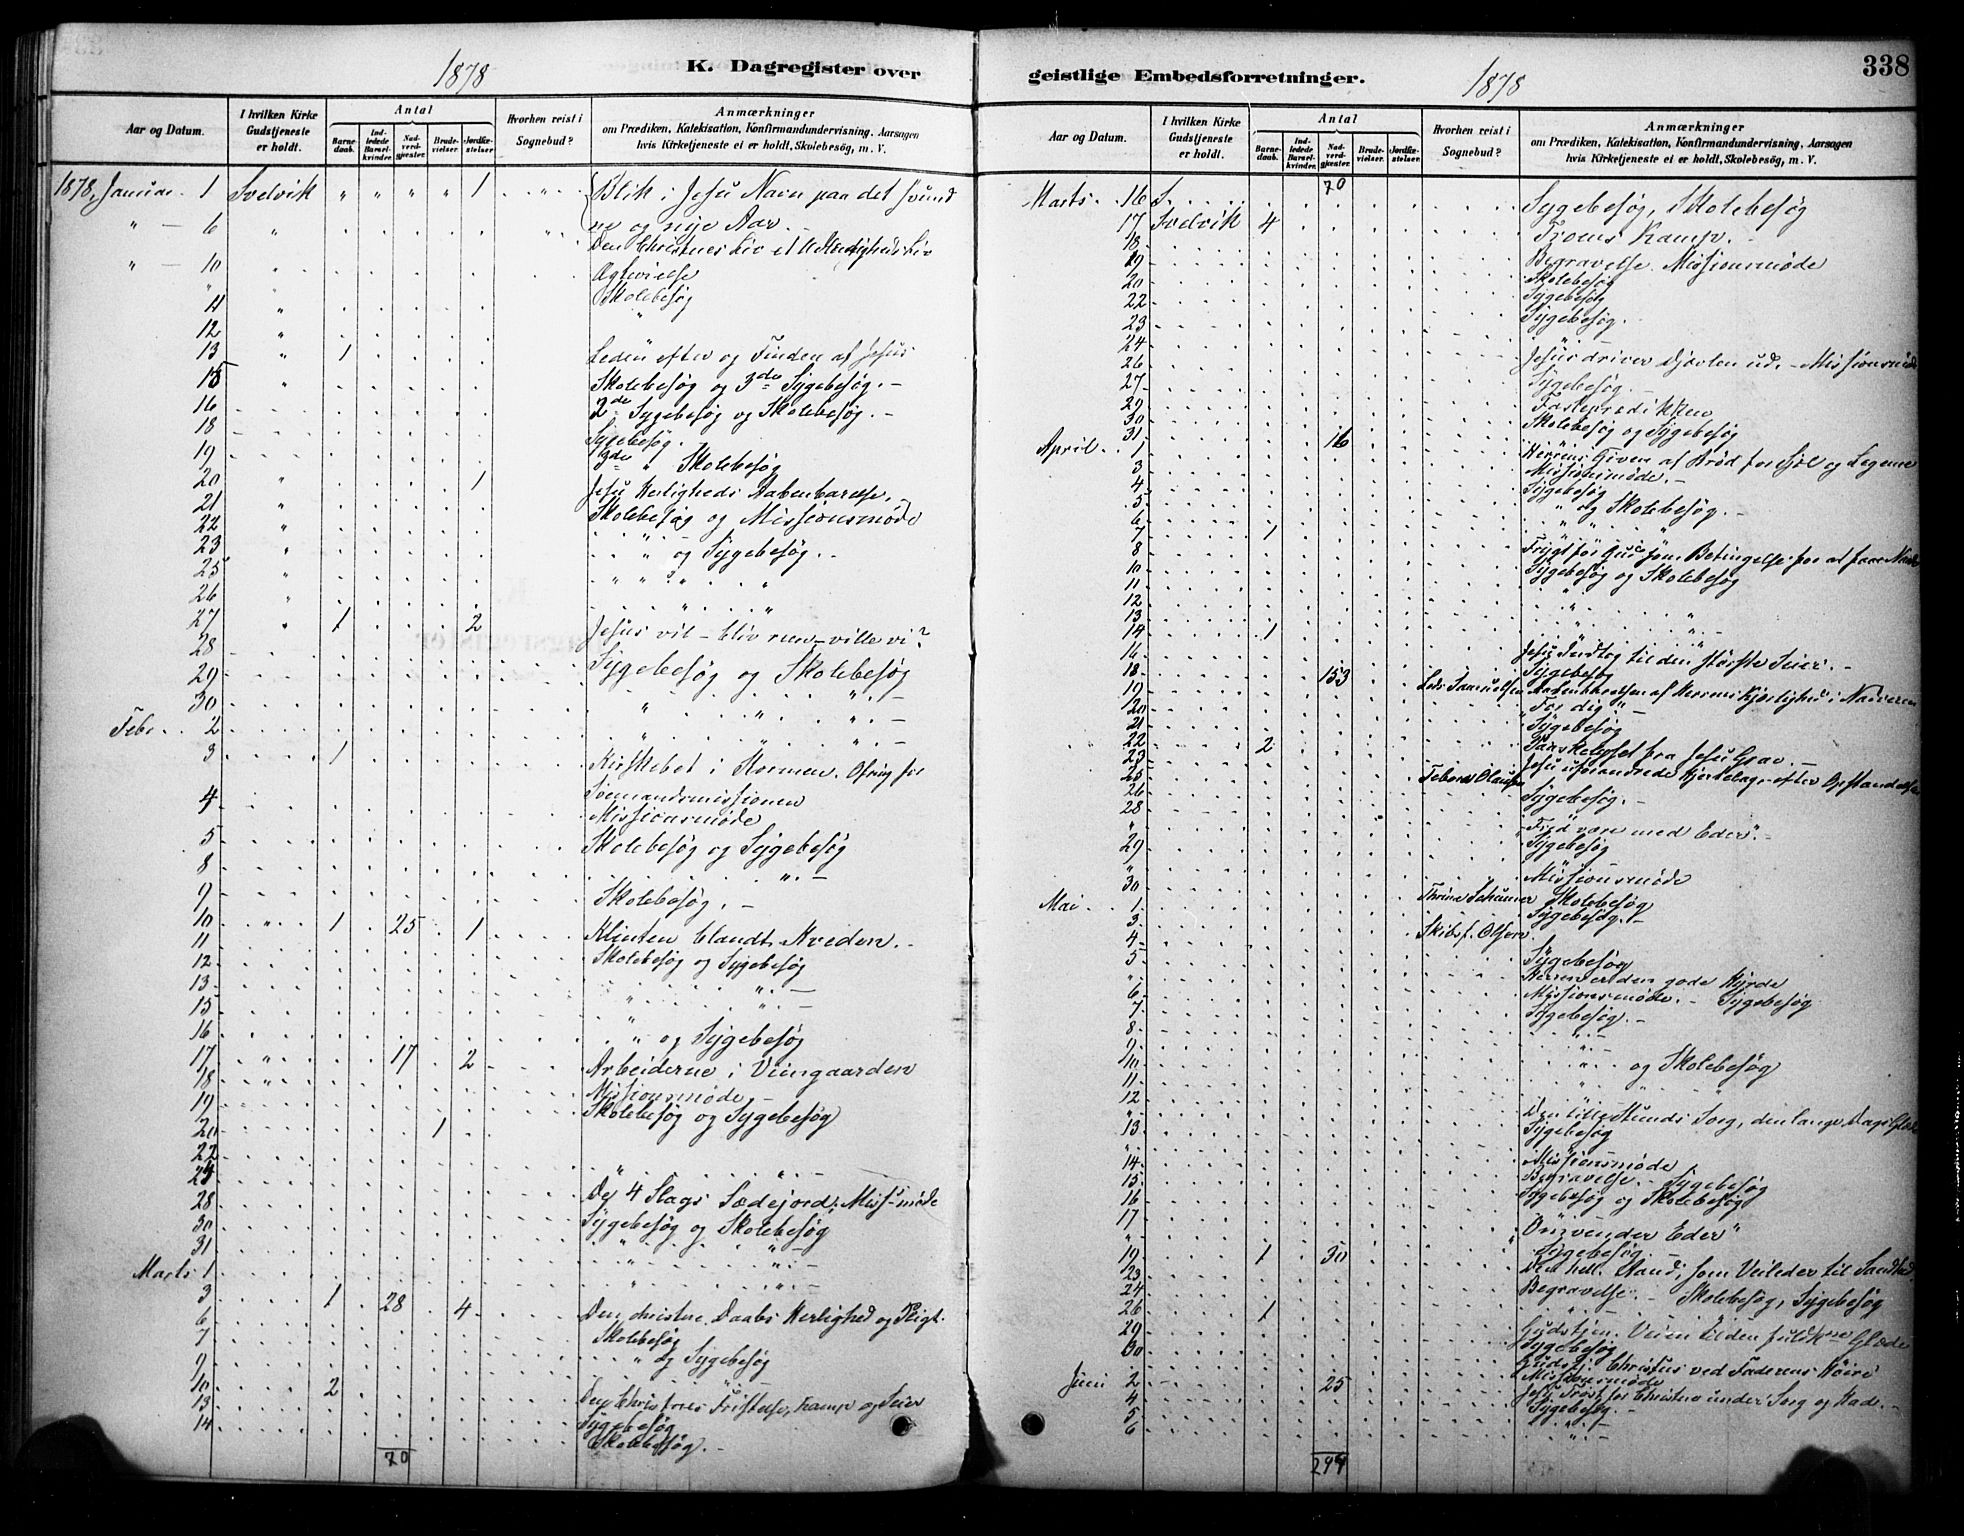 1878
K. Dagregister over
Aar og Datum.
I hvilken Kirke Gudstjeneste er holdt.
Antal
Barnedaab.
Indledede Barselkvinder.
Nadverdgjester.
Brudevielser.
Jordfæstelser.
Hvorhen reist i Sognebud?
Anmærkninger
om Prædiken, Katekisation, Konfirmandundervisning, Aarsagen
hvis Kirketjeneste ei er holdt, Skolebesøg, m. V.
1878, Januar 1 Svelvik " " " " 1 Blik i Jesu Navn paa det svund
ne og nye Aar.
" — 6 " Den Christnes Liv et
" — 10 "
" " Skolebesøg
11 " "
12 "
13 " 1 Leden efter og Finden af Jesus
15 " Skolebesøg og 3de Sygebesøg. —
16 2de Sygebesøg og Skolebesøg. —
18 Sygebesøg.
19 " 3de " Skolebesøg
20 " 1 Jesu Herligheds Aabenbarelse. —
21 " Skolebesøg og Missionsmøde
22 "
23 " " og Sygebesøg.
25 " " " "
26 " " "
27 " 1 2 Jesus vil — bliv reen — ville vi?
28 Sygebesøg og Skolebesøg
29 " —
30 " " " —
Febr. 2 " " " —
3 1 Kirkskibet i Stormen. Ofring for
Sømandsmissionen
4 Missionsmøde
5 Skolebesøg og Sygebesøg
8 " —
9 Skolebesøg. —
10 " 1 25 1 Klinten blandt Hveden. —
11 Skolebesøg og Sygebesøg
12 " " —
13 " " —
15
16 " og Sygebesøg
17 " 17 2 Arbeiderne i Viingaarden
18 " Missionsmøde. —
19 Skolebesøg og Sygebesøg
20 1
22 " " —
24 De 4 Slags Sædejord. Miss-møde
28 Sygebesøg og Skolebesøg
30 " " —
31 " " —
Marts 1 " " —
3 1 28 4 Den christne Daabs Herlighed og Pligt.
6 Skolebesøg
7 " og Sygebesøg
9 "
10 2 Den Christnes Fristelse, Kamp og Seier
13 Sygebesøg
14 Skolebesøg. —
70
geistlige Embedsforretninger.
1878
338
Aar og Datum.
I hvilken Kirke Gudstjeneste er holdt.
Antal
Barnedaab.
Indledede Barselkvinder.
Nadverdgjester.
Brudevielser.
Jordfæstelser.
Hvorhen reist i Sognebud?
Anmærkninger
om Prædiken, Katekisation, Konfirmandundervisning, Aarsagen
hvis Kirketjeneste ei er holdt, Skolebesøg, m. V.
70
Marts. 16 S. Sygebesøg, Skolebesøg
17 Svelvik 4 Troens Kamp. —
18
19 Begravelse. Missionsmøde
20 Skolebesøg
22 Sygebesøg
23 Sygebesøg.
24 "
26 Jesus driver Djævlen ud. — Missionsmøde
27 Sygebesøg. —
29 Fasteprædikken
30 Skolebesøg og Sygebesøg
31 16
April. 1 Herrens Given af Brød for Sjæl og Legeme
3 Missionsmøde. —
4 Sygebesøg
5 " og Skolebesøg. —
6 " " "
7 1
8 Frygt for Gud som Betingelse for at faae Naade
10 Sygebesøg og Skolebesøg
11
12 " "
13 " " —
14 1
16 Jesu Indtog til den største Seier. —
18 153 Sygebesøg
19 af Herrens Kjærlighed i Nadveren
20 "For dig." —
21 Sygebesøg
22 2 fra Jesu Grav. —
23 Jesu uforandrede Hjertelag efter Opstandelsen
25
26 Sygebesøg. —
28
" "Fred være med Eder". —
29 Sygebesøg
"
30 Missionsmøde
Mai. 1 Skolebesøg
3 Sygebesøg. —
4 Skibsf. Olsen.
5 Sygebesøg
" Herren er den gode Hyrde
6 Missionsmøde. — Sygebesøg
7 Sygebesøg. —
8
9 " —
10 " og Skolebesøg
11 "
12
" Den lille Stunds Sorg, den lange Dags Glæde
13 Sygebesøg
"
14 Missionsmøde
15 Begravelse. — Sygebesøg
16 Sygebesøg og Skolebesøg
17
" "Omvender Eder"
19 1 30 Sygebesøg. —
23 Den hell. Aand, som Veileder til Sandhed
24 Begravelse. — Skolebesøg, Sygebesøg
26 1 " —
29 Gudstjen. Veien til den fuldkne Glæde
30 Sygebesøg
Gudstj. Christus ved Faderens Høire
Juni 2 25 Missionsmøde
4 Jesu Trøst for Christne under Sorg og Had. —
5 Sygebesøg. —
6 " —
294